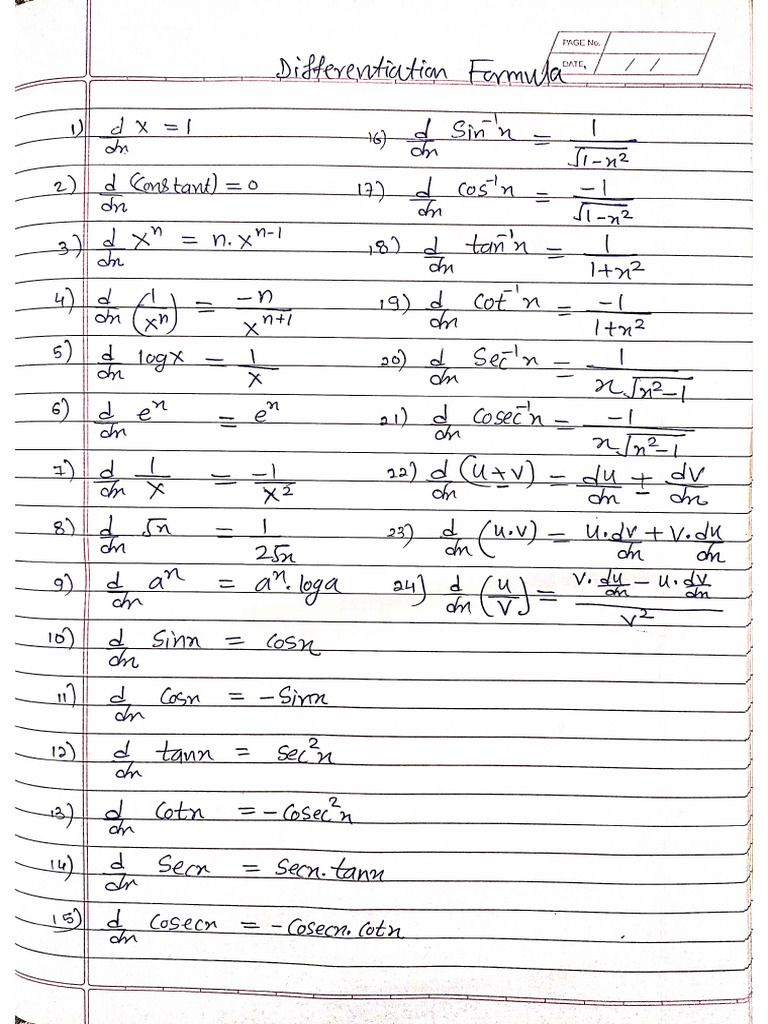 PAGE No.
DATE, / /
Differentiation Formula
1) d/dx x = 1
2) d/dx (constant) = 0
3) d/dx xⁿ = n.xⁿ⁻¹
4) d/dx (1/xⁿ) = -n/xⁿ⁺¹
5) d/dx logx = 1/x
6) d/dx eˣ = eˣ
7) d/dx 1/x = -1/x²
8) d/dx √x = 1/2√x
9) d/dx aˣ = aˣ.loga
10) d/dx Sinx = cosx
11) d/dx Cosx = -Sinx
12) d/dx tanx = sec²x
13) d/dx Cotx = -Cosec²x
14) d/dx Secx = Secx.tanx
15) d/dx Cosecx = -Cosecx.Cotx
16) d/dx Sin⁻¹x = 1/√1-x²
17) d/dx cos⁻¹x = -1/√1-x²
18) d/dx tan⁻¹x = 1/1+x²
19) d/dx Cot⁻¹x = -1/1+x²
20) d/dx Sec⁻¹x = 1/x√x²-1
21) d/dx Cosec⁻¹x = -1/x√x²-1
22) d/dx (u ± v) = du/dx ± dv/dx
23) d/dx (u.v) = u.dv/dx + v.du/dx
24) d/dx (u/v) = v.du/dx - u.dv/dx / v²